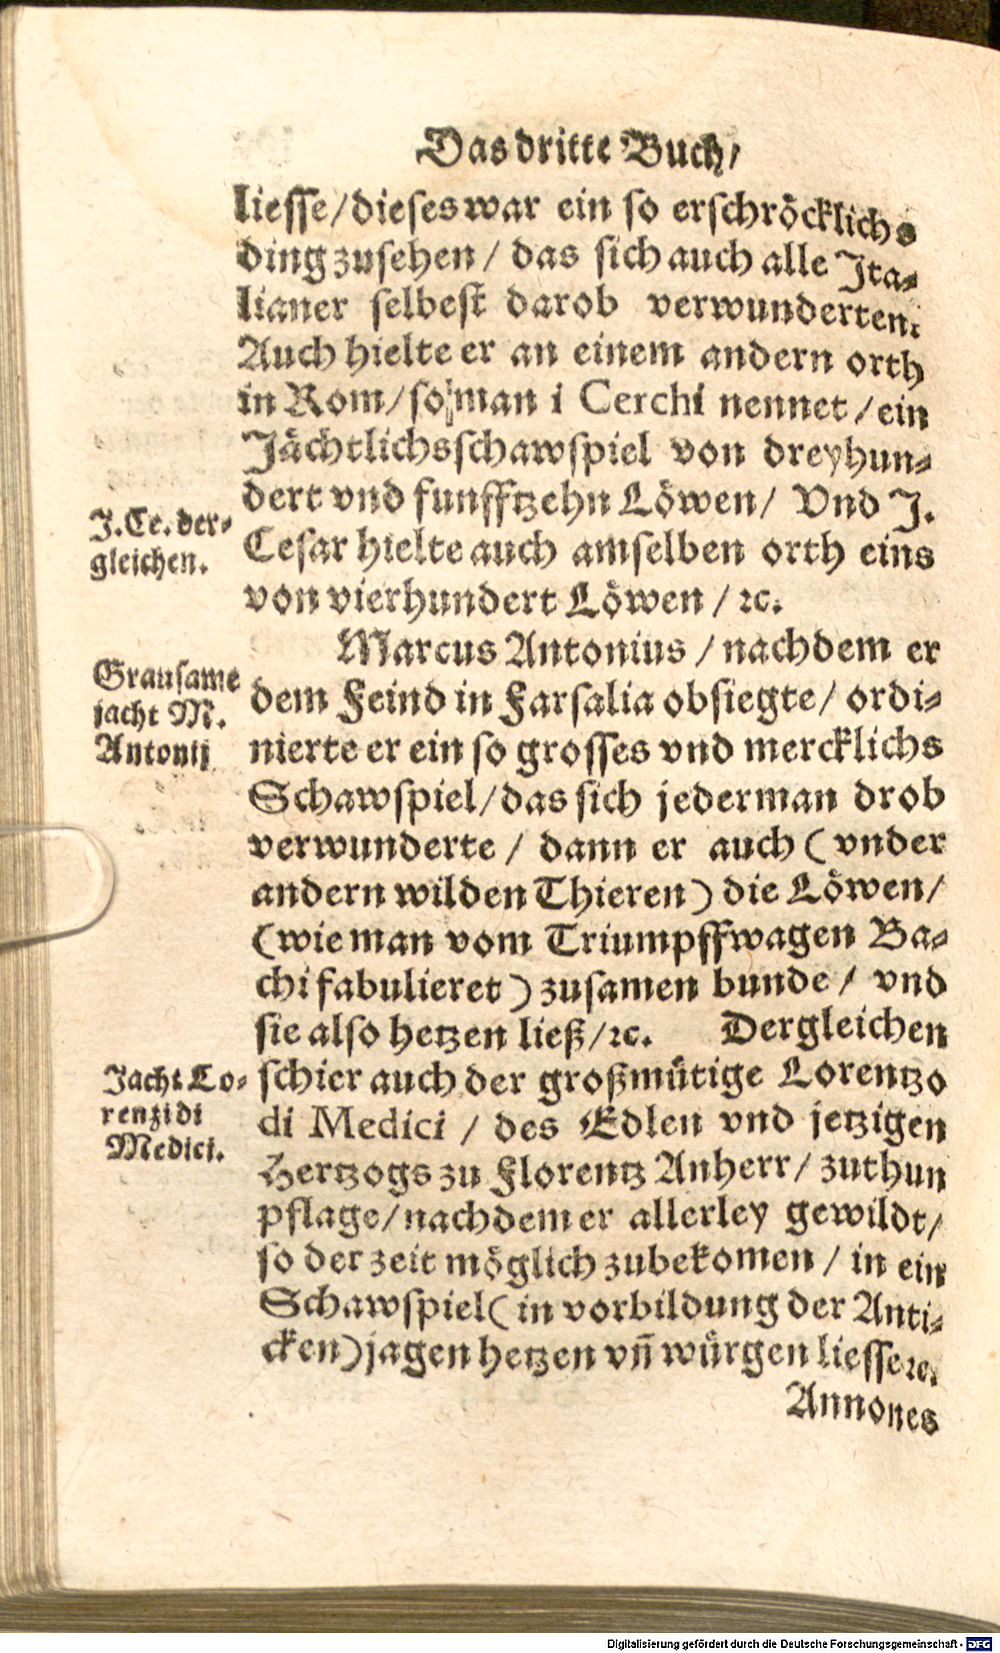 Das dritte Buch/
liesse/dieses war ein so erschröcklichs
ding zusehen/ das sich auch alle Ita-
lianer selbest darob verwunderten.
Auch hielte er an einem andern orth
in Rom/so man i Cerchi nennet/ein
Jächtlichsschawspiel von dreyhun-
dert vnd funfftzehn Löwen/ Vnd J.
J. Ce. der-
gleichen.
Cesar hielte auch amselben orth eins
von vierhundert Löwen/ ꝛc.
Marcus Antonius/nachdem er
Grausame
jacht M.
Antonij
dem Feind in Farsalia obsiegte/ ordi-
nierte er ein so grosses vnd mercklichs
Schawspiel/das sich jederman drob
verwunderte/ dann er auch (vnder
andern wilden Thieren) die Löwen/
(wie man vom Triumpffwagen Ba-
chi fabulieret) zusamen bunde/ vnd
sie also hetzen ließ/ꝛc. Dergleichen
Jacht Lo-
renzi di
Medici.
schier auch der großmütige Lorentzo
di Medici/ des Edlen vnd jetzigen
Hertzogs zu Florentz Anherr/ zuthun
pflage/nachdem er allerley gewildt/
so der zeit möglich zubekomen/ in ein
Schawspiel(in vorbildung der Anti-
cken)jagen hetzen vñ würgen liesse ꝛc.
Annones
Digitalisierung gefördert durch die Deutsche Forschungsgemeinschaft - DFG